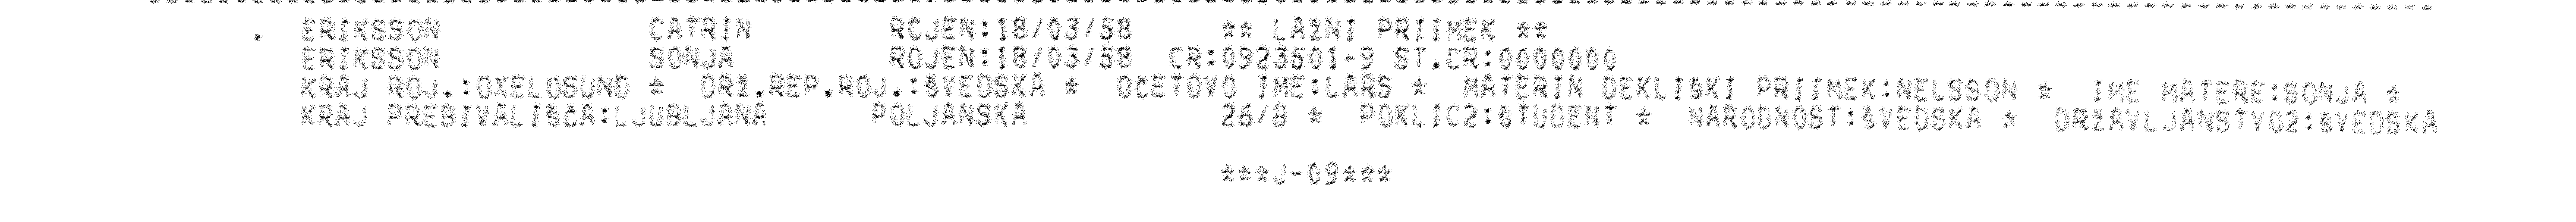 . ERIKSSON CATRIN ROJEN:18/03/58 ** LAŽNI PRIIMEK **
ERIKSSON SONJA ROJEN:18/03/58 CR:0923501-9 ST.CR:0000000
KRAJ ROJ.:OXELOSUND * DRŽ.REP.ROJ.:ŠVEDSKA * OČETOVO IME:LARS * MATERIN DEKLIŠKI PRIIMEK:NELSSON * IME MATERE:SONJA *
KRAJ PREBIVALIŠČA:LJUBLJANA POLJANSKA 26/8 * POKLIC2:ŠTUDENT * NARODNOST:ŠVEDSKA * DRŽAVLJANSTVO2:ŠVEDSKA
***J-09***